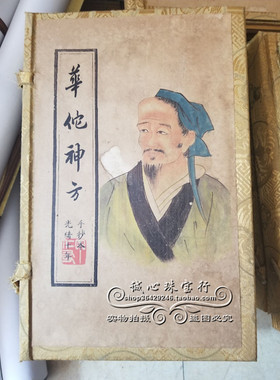 華佗神方
手抄本
光緒十年
诚心珠宝行
shop36429246.taobao.com
实物拍摄 盗图必究